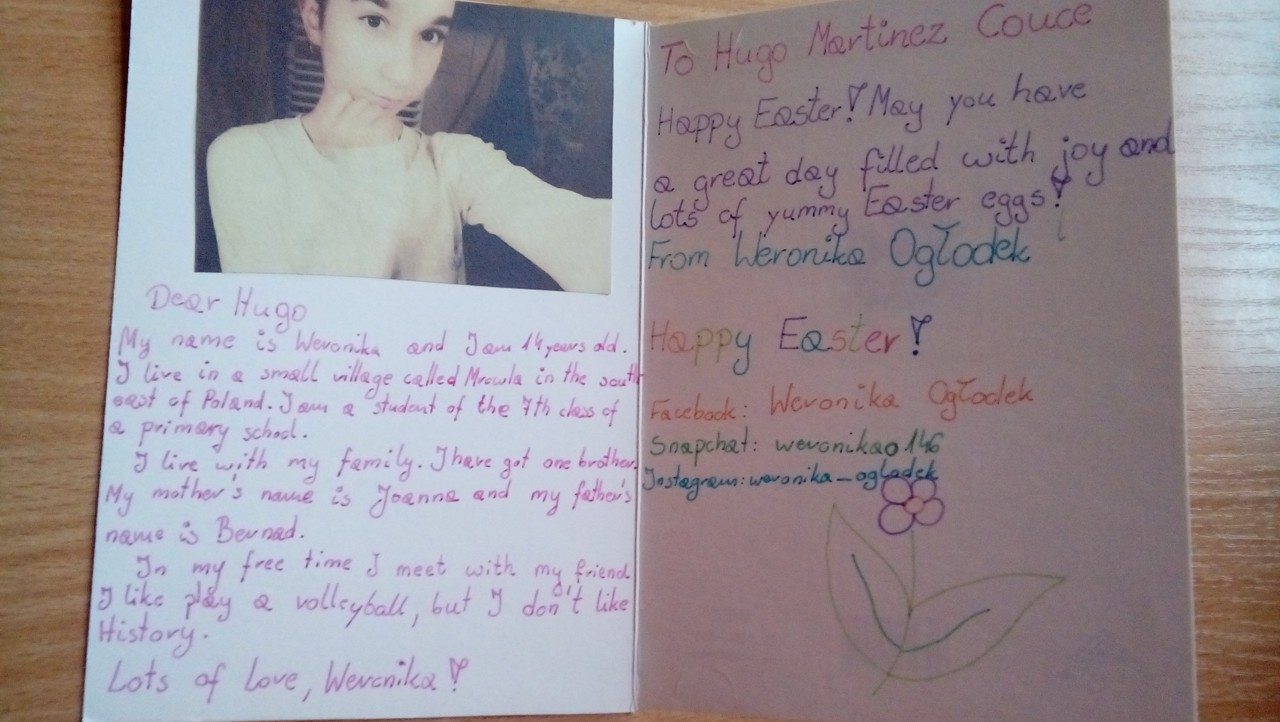 Dear Hugo
My name is Weronika and I am 14 years old.
I live in a small village called Mrowla in the south
east of Poland. I am a student of the 7th class of
a primary school.
I live with my family. I have got one brother.
My mother's name is Joanna and my father's
name is Bernad.
In my free time I meet with my friend
I like play a volleyball, but I don't like
History.
Lots of Love, Weronika!
To Hugo Martinez Couce
Happy Easter! May you have
a great day filled with joy and
lots of yummy Easter eggs!
From Weronika Ogłodek
Happy Easter!
Facebook: Weronika Ogłodek
Snapchat: weronikao146
Instagram: weronika_oglodek